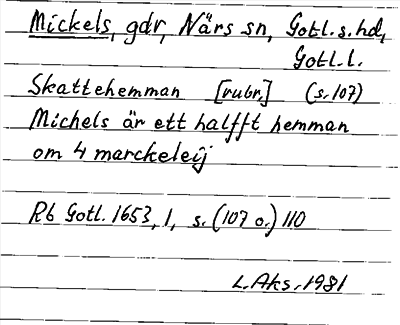 Mickels, gdr, Närs sn, Gotl. s. hd,
Gotl. l.
Skattehemman [rubr.] (s. 107)
Michels är ett halfft hemman
om 4 marckeleij
Rb Gotl. 1653, 1, s. (107 o.) 110
L. Aks. 1981